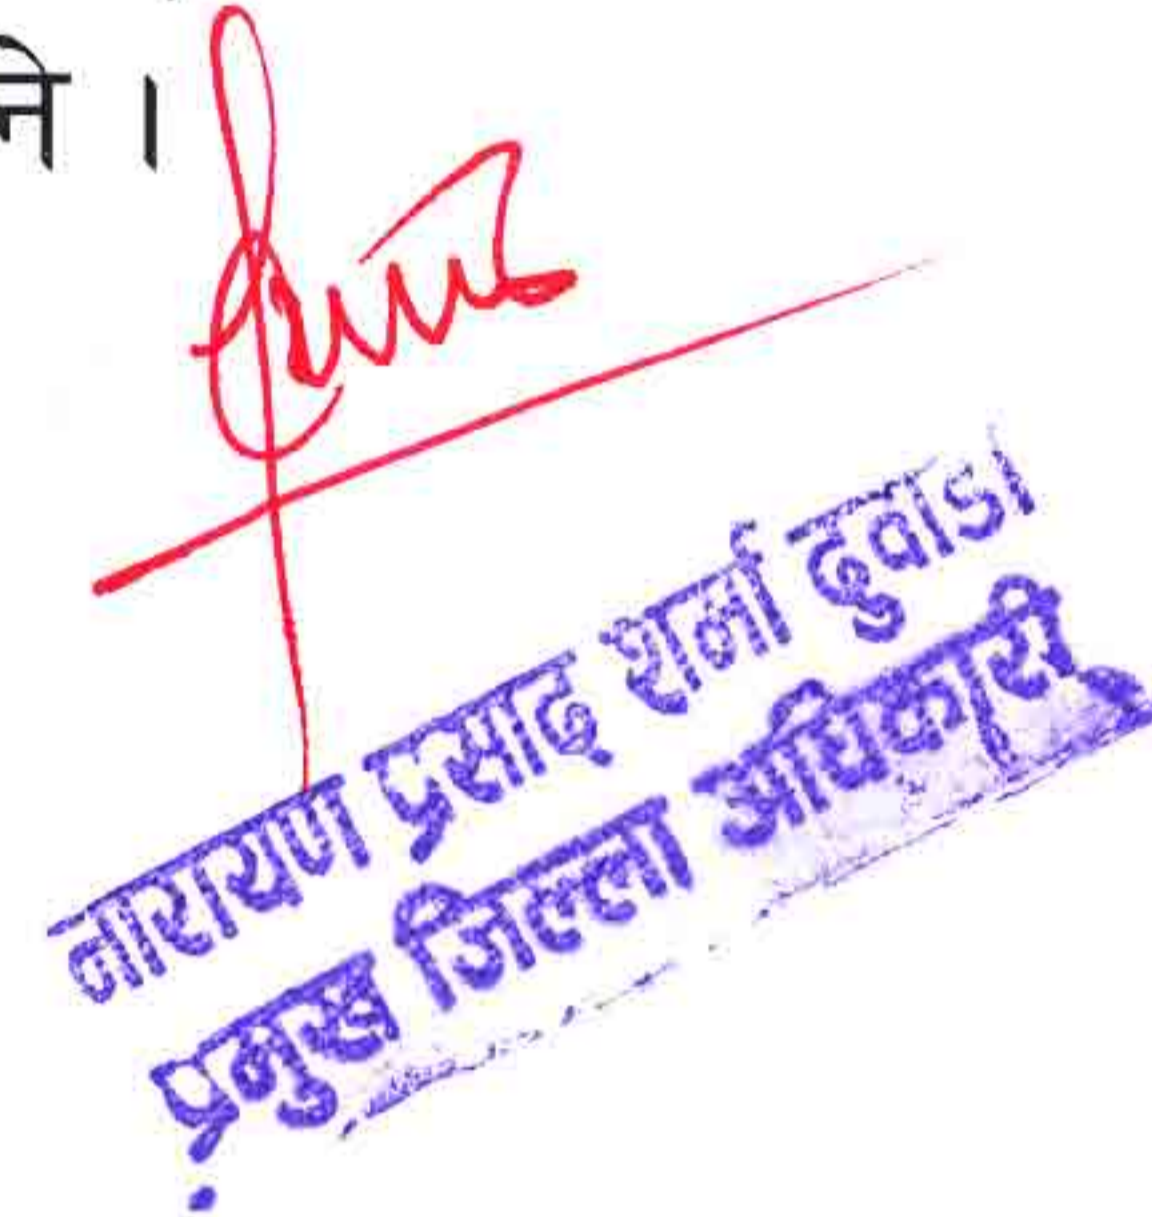 ने ।
नारायण प्रसाद शर्मा दुवाडी
प्रमुख जिल्ला अधिकारी